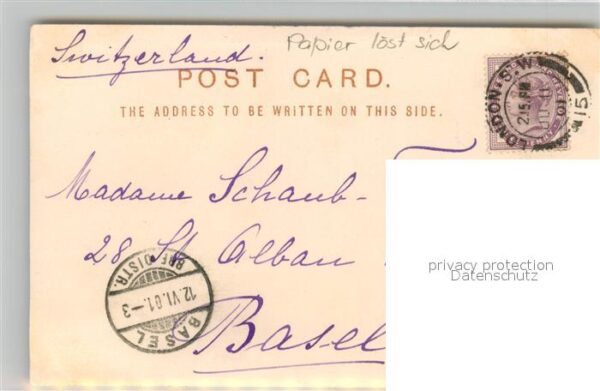 Switzerland.
Papier löst sich
POST CARD.
THE ADDRESS TO BE WRITTEN ON THIS SIDE.
LONDON. S.W.
2.15 PM
15
Madame Schaub-
28 St Alban
Basel
BASEL
BRF. DISTR.
12.VI.01.-3
privacy protection
Datenschutz